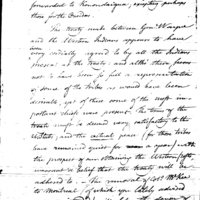 forwarded to Konondaigua, excepting perhaps
those for the Oneidas.
The Treaty made between Genl Wayne
and the Western Indians appears to have
been cordially agreed to by all the Indians
present at the Treaty, and altho' there
not to have been so full a representation
of some of the tribes as would have been
desirable, yet of those some of the most
portant chiefs were present. The terms of the
treaty were deemed very satisfactory to the
and the actual peace (for those tribes
have remained quiet for a year) with
the prospect of our obtaining the Western
to believe that the treaty will be
adhered to. The removal of Colo McKee
to Montreal, of which you lately advised